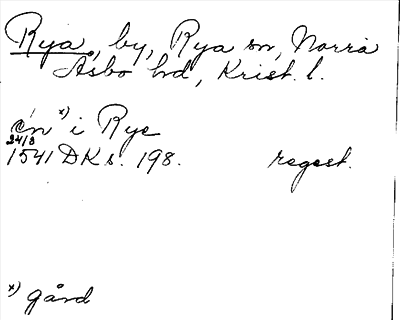 Rya, by, Rya sn, Norra
Åsbo hd, Krist. l.
én x) i Rye
24/3
1541 DKs. 198. regest.
x) gård